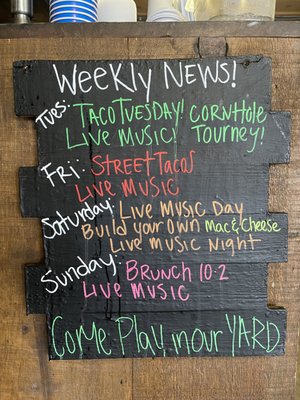 Weekly News!
Tues: Taco Tuesday! Cornhole
Live Music! Tourney!
Fri: Street Tacos
Live Music
Saturday: Live Music Day
Build your own Mac & Cheese
Live Music Night
Sunday: Brunch 10-2
Live Music
Come Play in our YARD